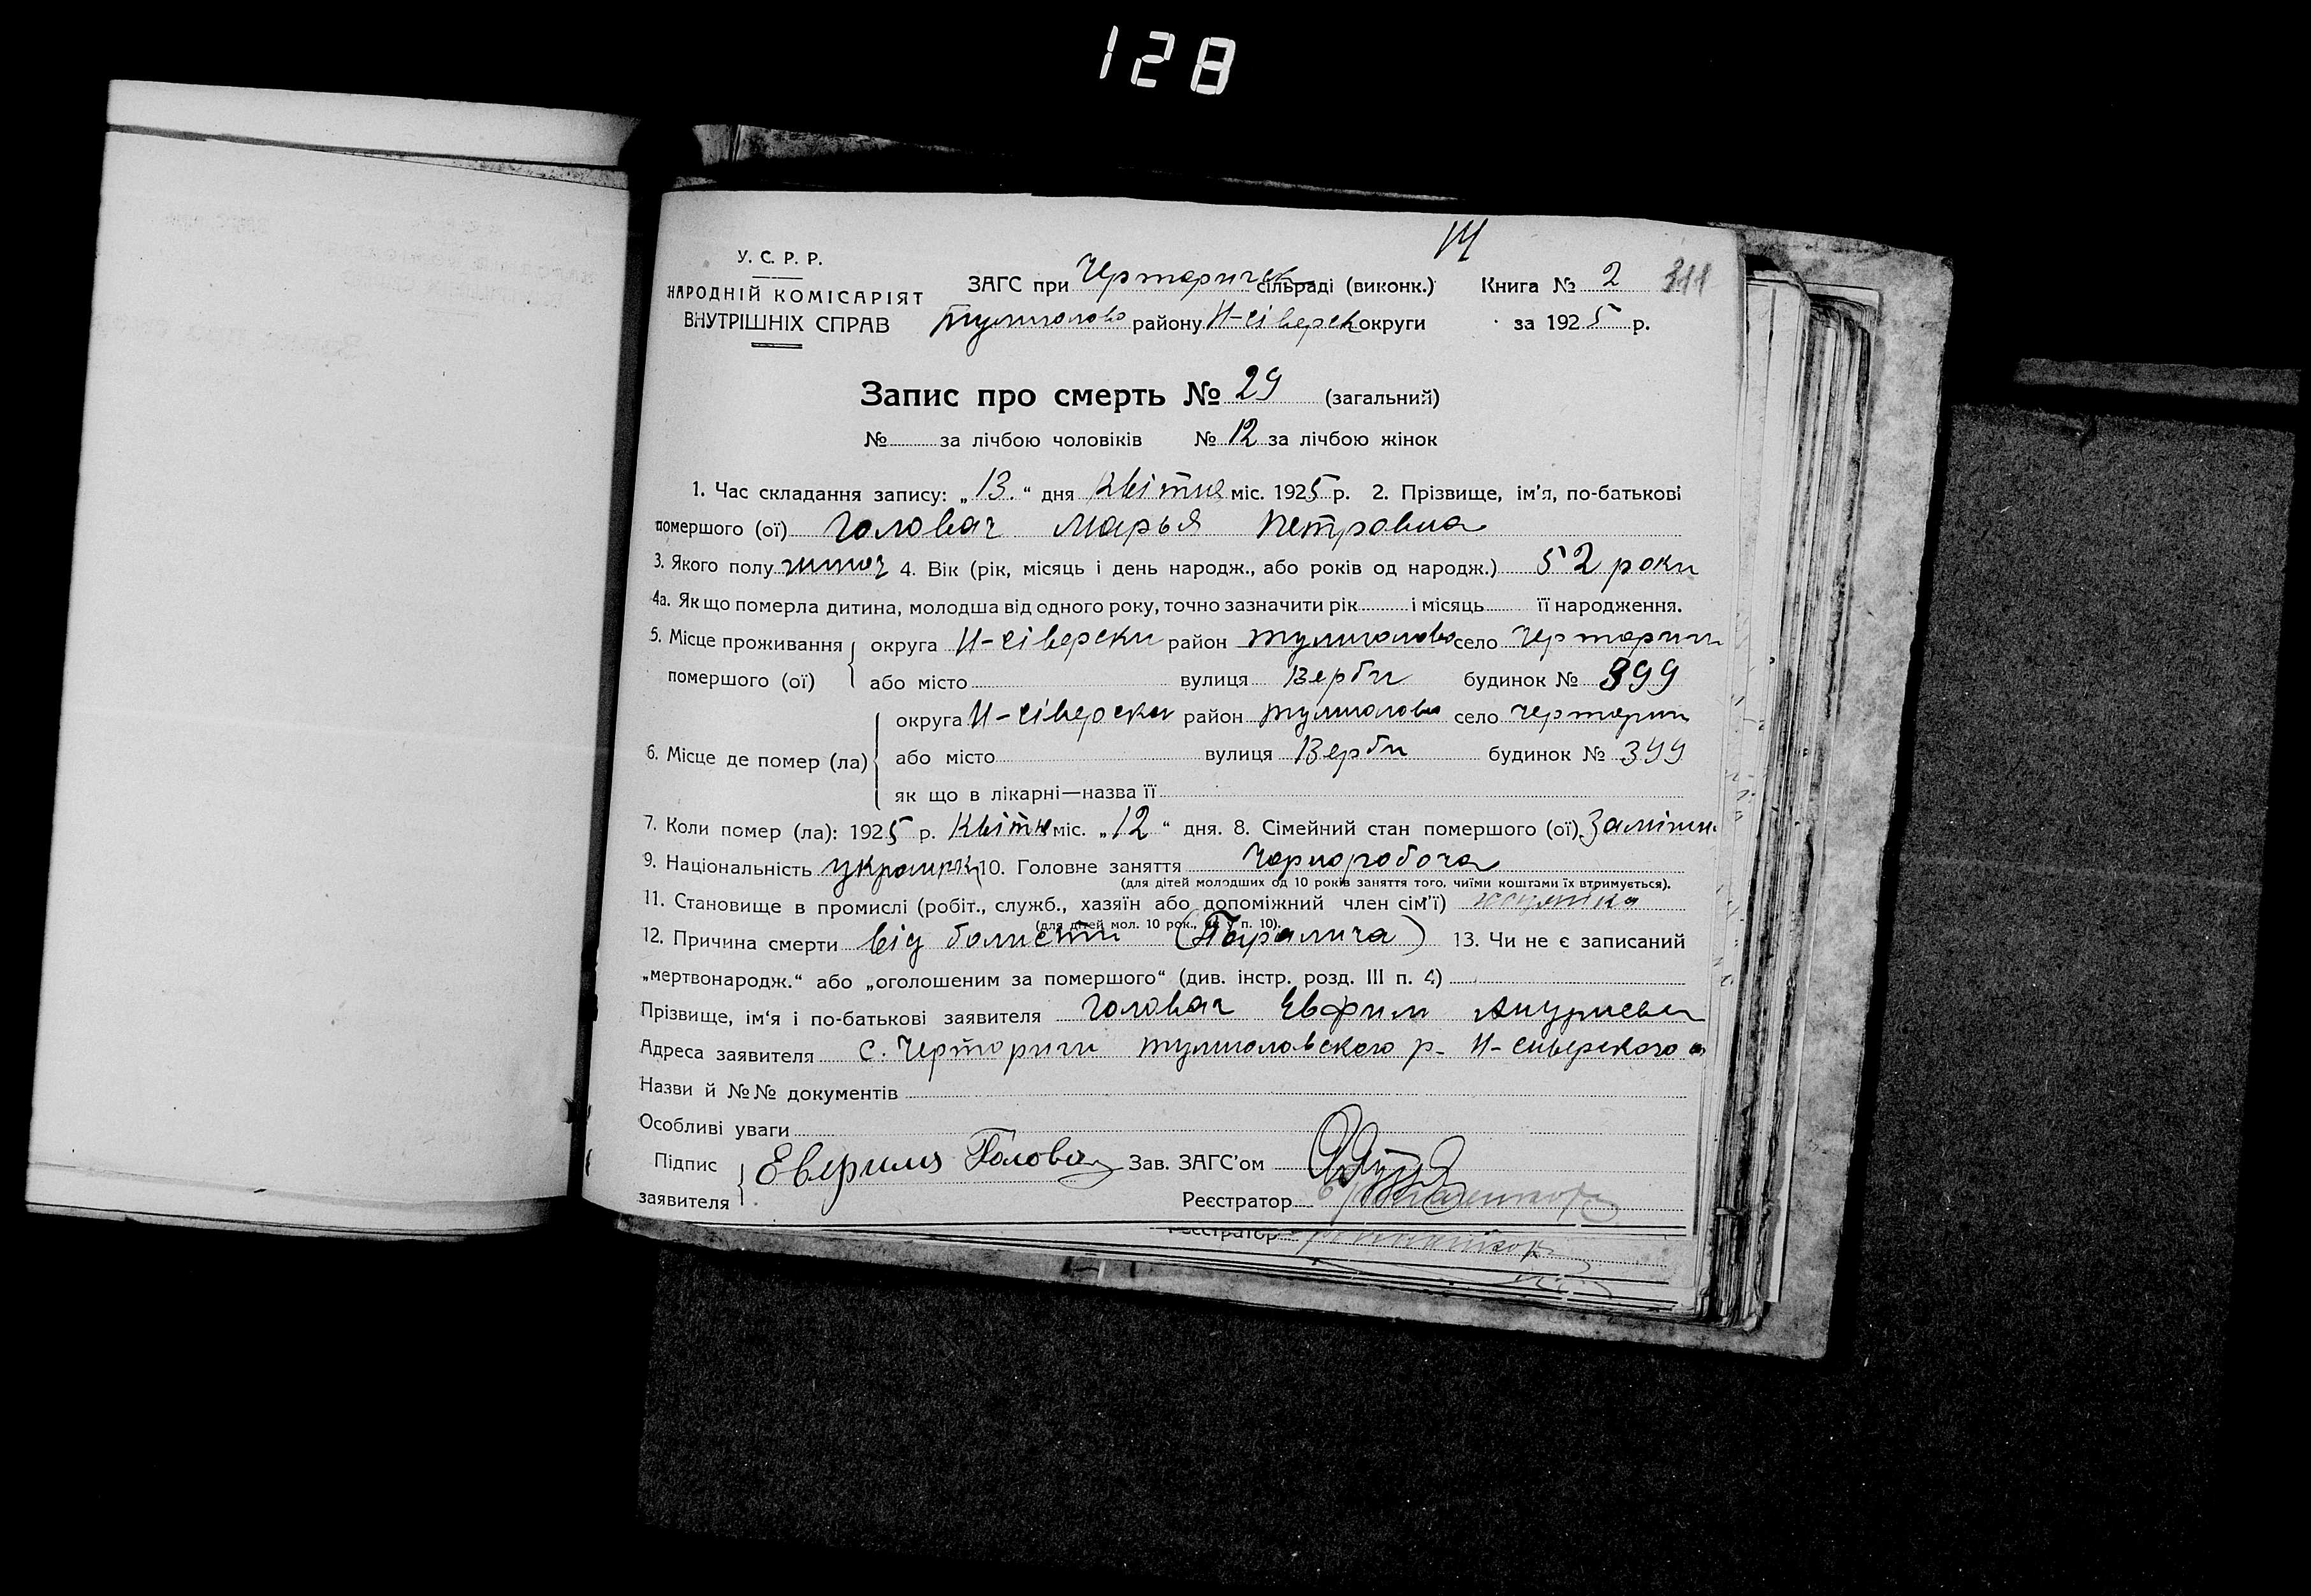 128
У. С. Р. Р.
НАРОДНІЙ КОМІСАРІЯТ
ВНУТРІШНІХ СПРАВ
ЗАГС при Черторичск сільраді (виконк.) Книга № 2 311
Тулиголово району Н-Сіверск округи за 1925 р.
Запис про смерть № 29 (загальний)
№ за лічбою чоловіків № 12 за лічбою жінок
1. Час складання запису: „13.“ дня Квітня міс. 1925 р. 2. Прізвище, ім'я, по-батькові
помершого (ої) Головач Марья Петровна
3. Якого полу жиноч 4. Вік (рік, місяць і день народж., або років од народж.) 52 роки
4а. Як що померла дитина, молодша від одного року, точно зазначити рік і місяць її народження.
5. Місце проживання округа Н-Сіверски район Тулиголово село Черториги
помершого (ої) або місто вулиця Верби будинок № 399
округа Н-Сіверски район Тулиголово село Черториги
6. Місце де помер (ла) або місто вулиця Верби будинок № 399
як що в лікарні—назва її
7. Коли помер (ла): 1925 р. Квітн міс. „12“ дня. 8. Сімейний стан помершого (ої) Заміжн.
9. Національність украинк 10. Головне заняття Чорноробоча
(для дітей молодших од 10 років заняття того, чиїми коштами їх втримується).
11. Становище в промислі (робіт., служб., хазяїн або допоміжний член сім'ї)
(для дітей мол. 10 рок., як у п. 10).
12. Причина смерти від болисти (Паралича) 13. Чи не є записаний
„мертвонародж.“ або „оголошеним за помершого“ (див. інстр. розд. III п. 4)
Прізвище, ім'я і по-батькові заявителя Головач Евфим
Адреса заявителя с. Черториги Тулиголовского р- Н-Сиверского о
Назви й №№ документів
Особливі уваги
Підпис Евфимя Голова Зав. ЗАГС'ом
заявителя Реєстратор
Реєстратор